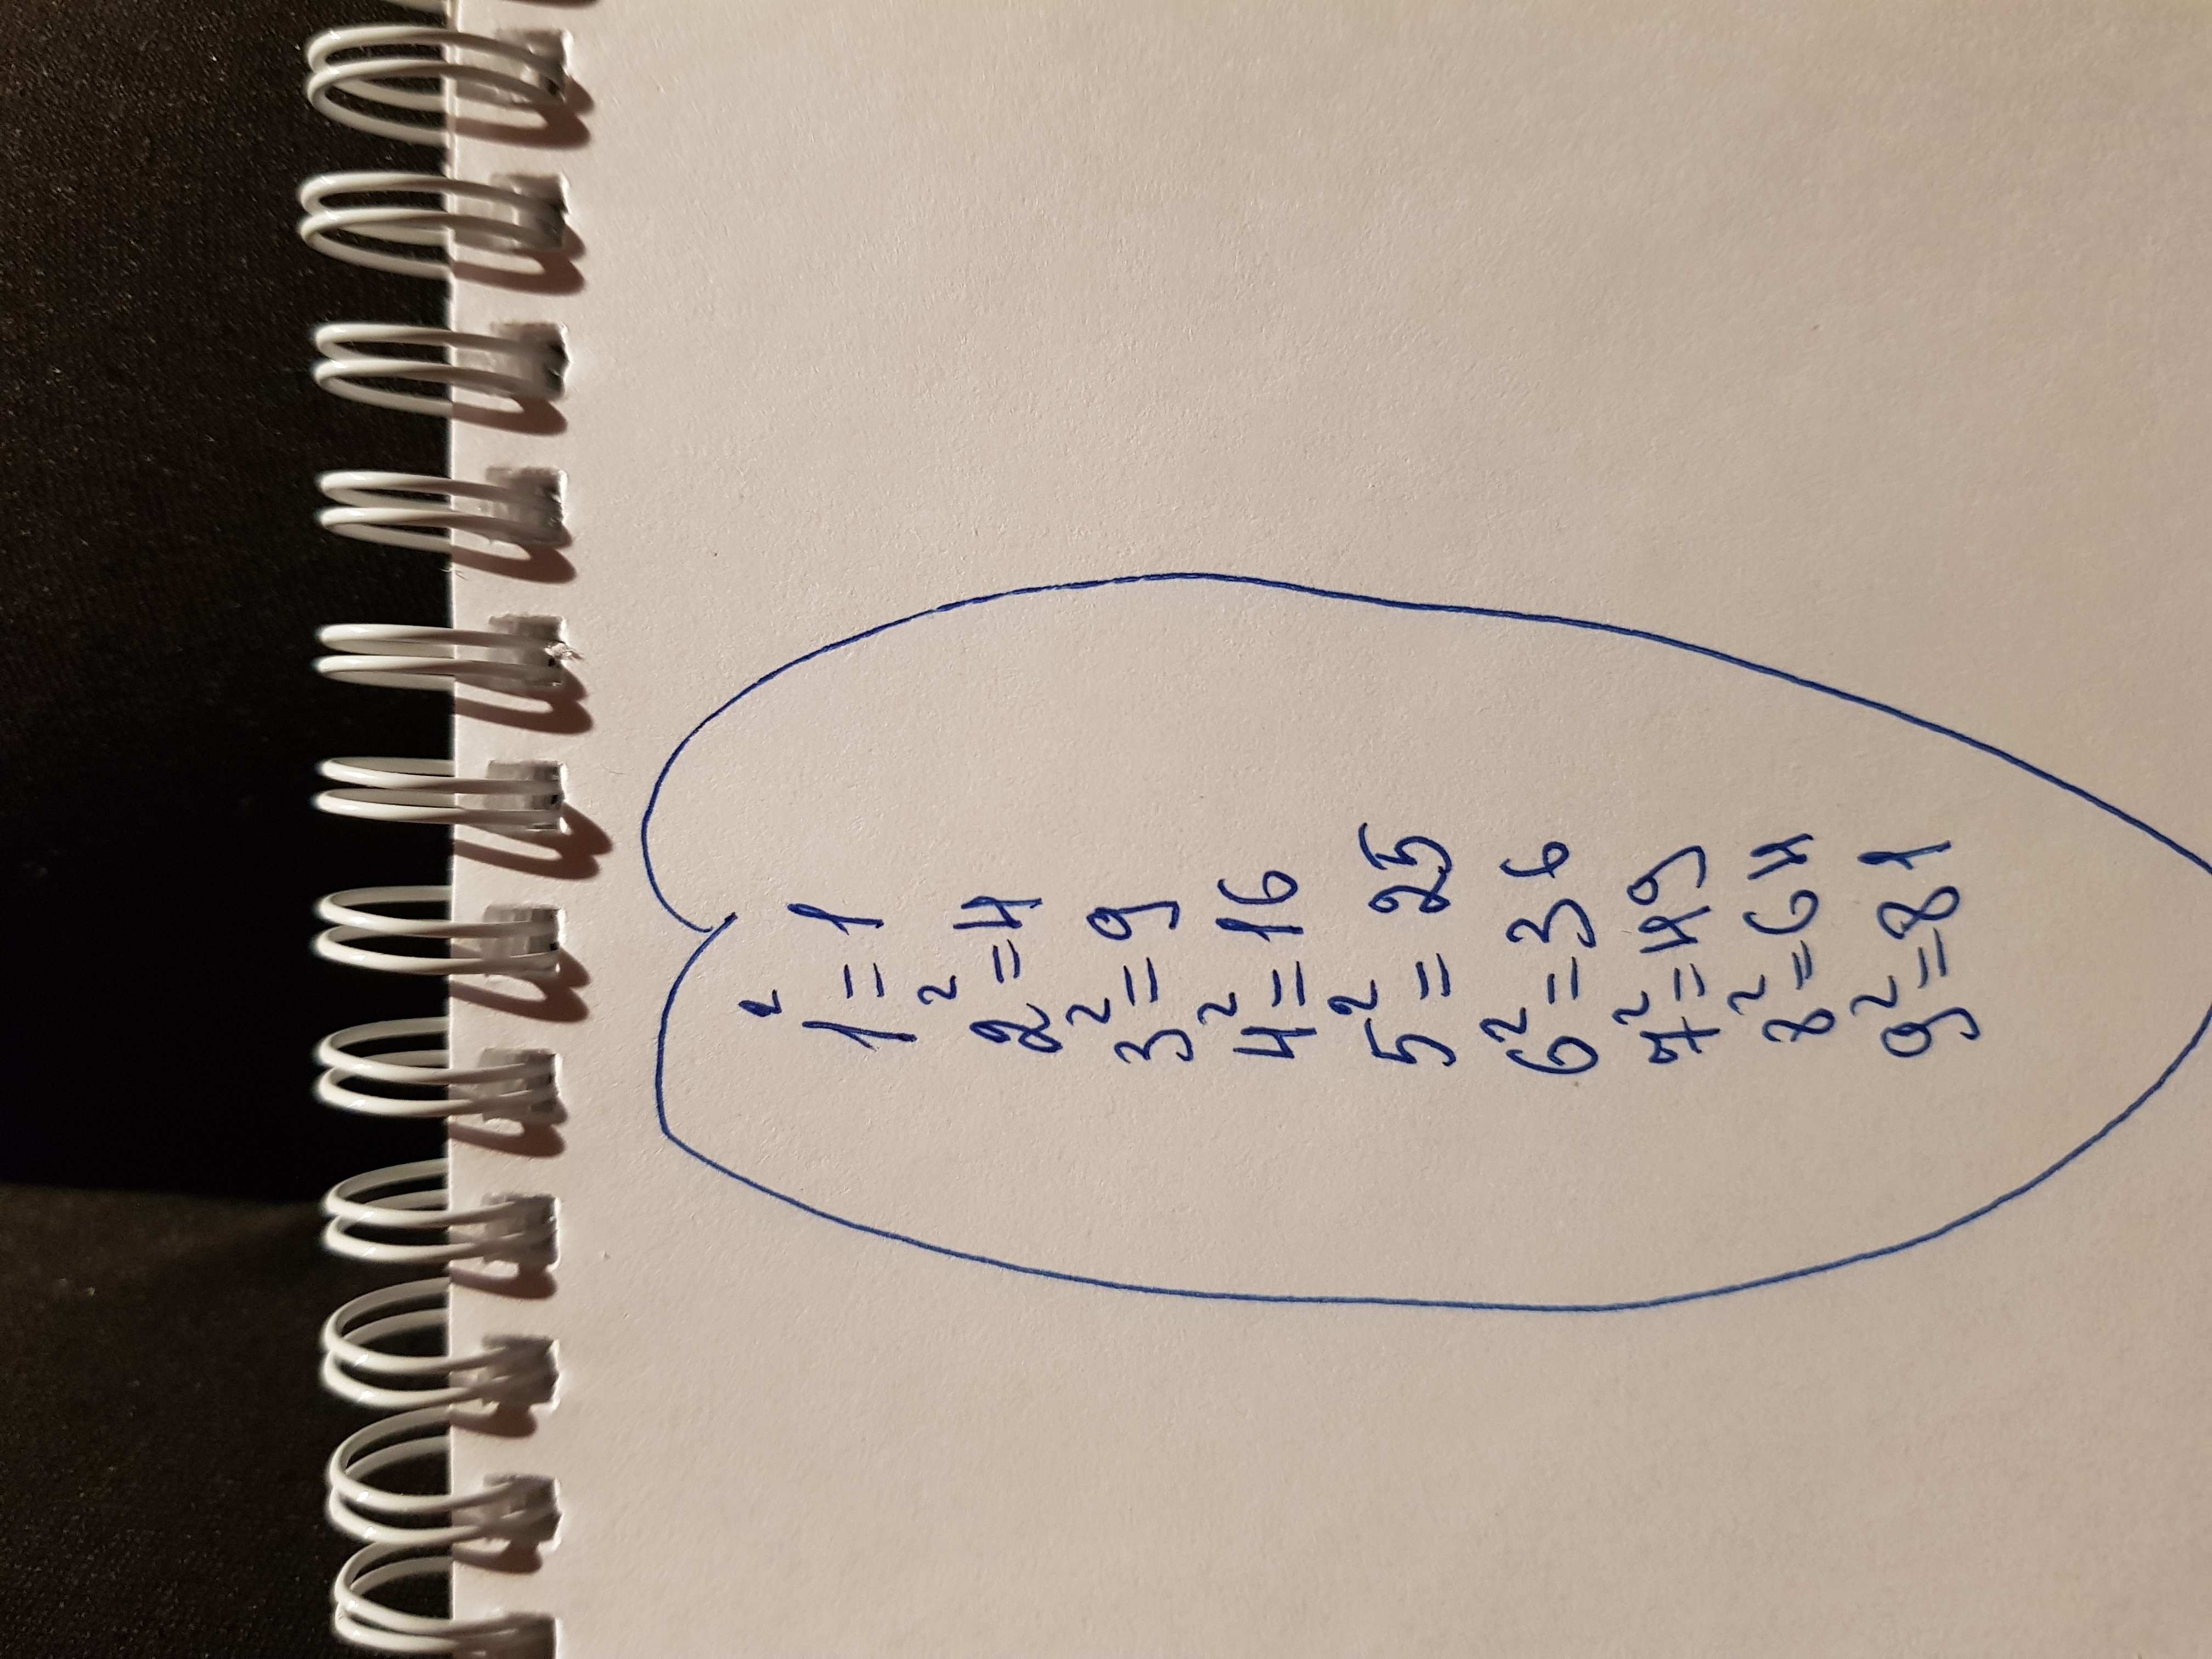 1² = 1
2² = 4
3² = 9
4² = 16
5² = 25
6² = 36
7² = 49
8² = 64
9² = 81